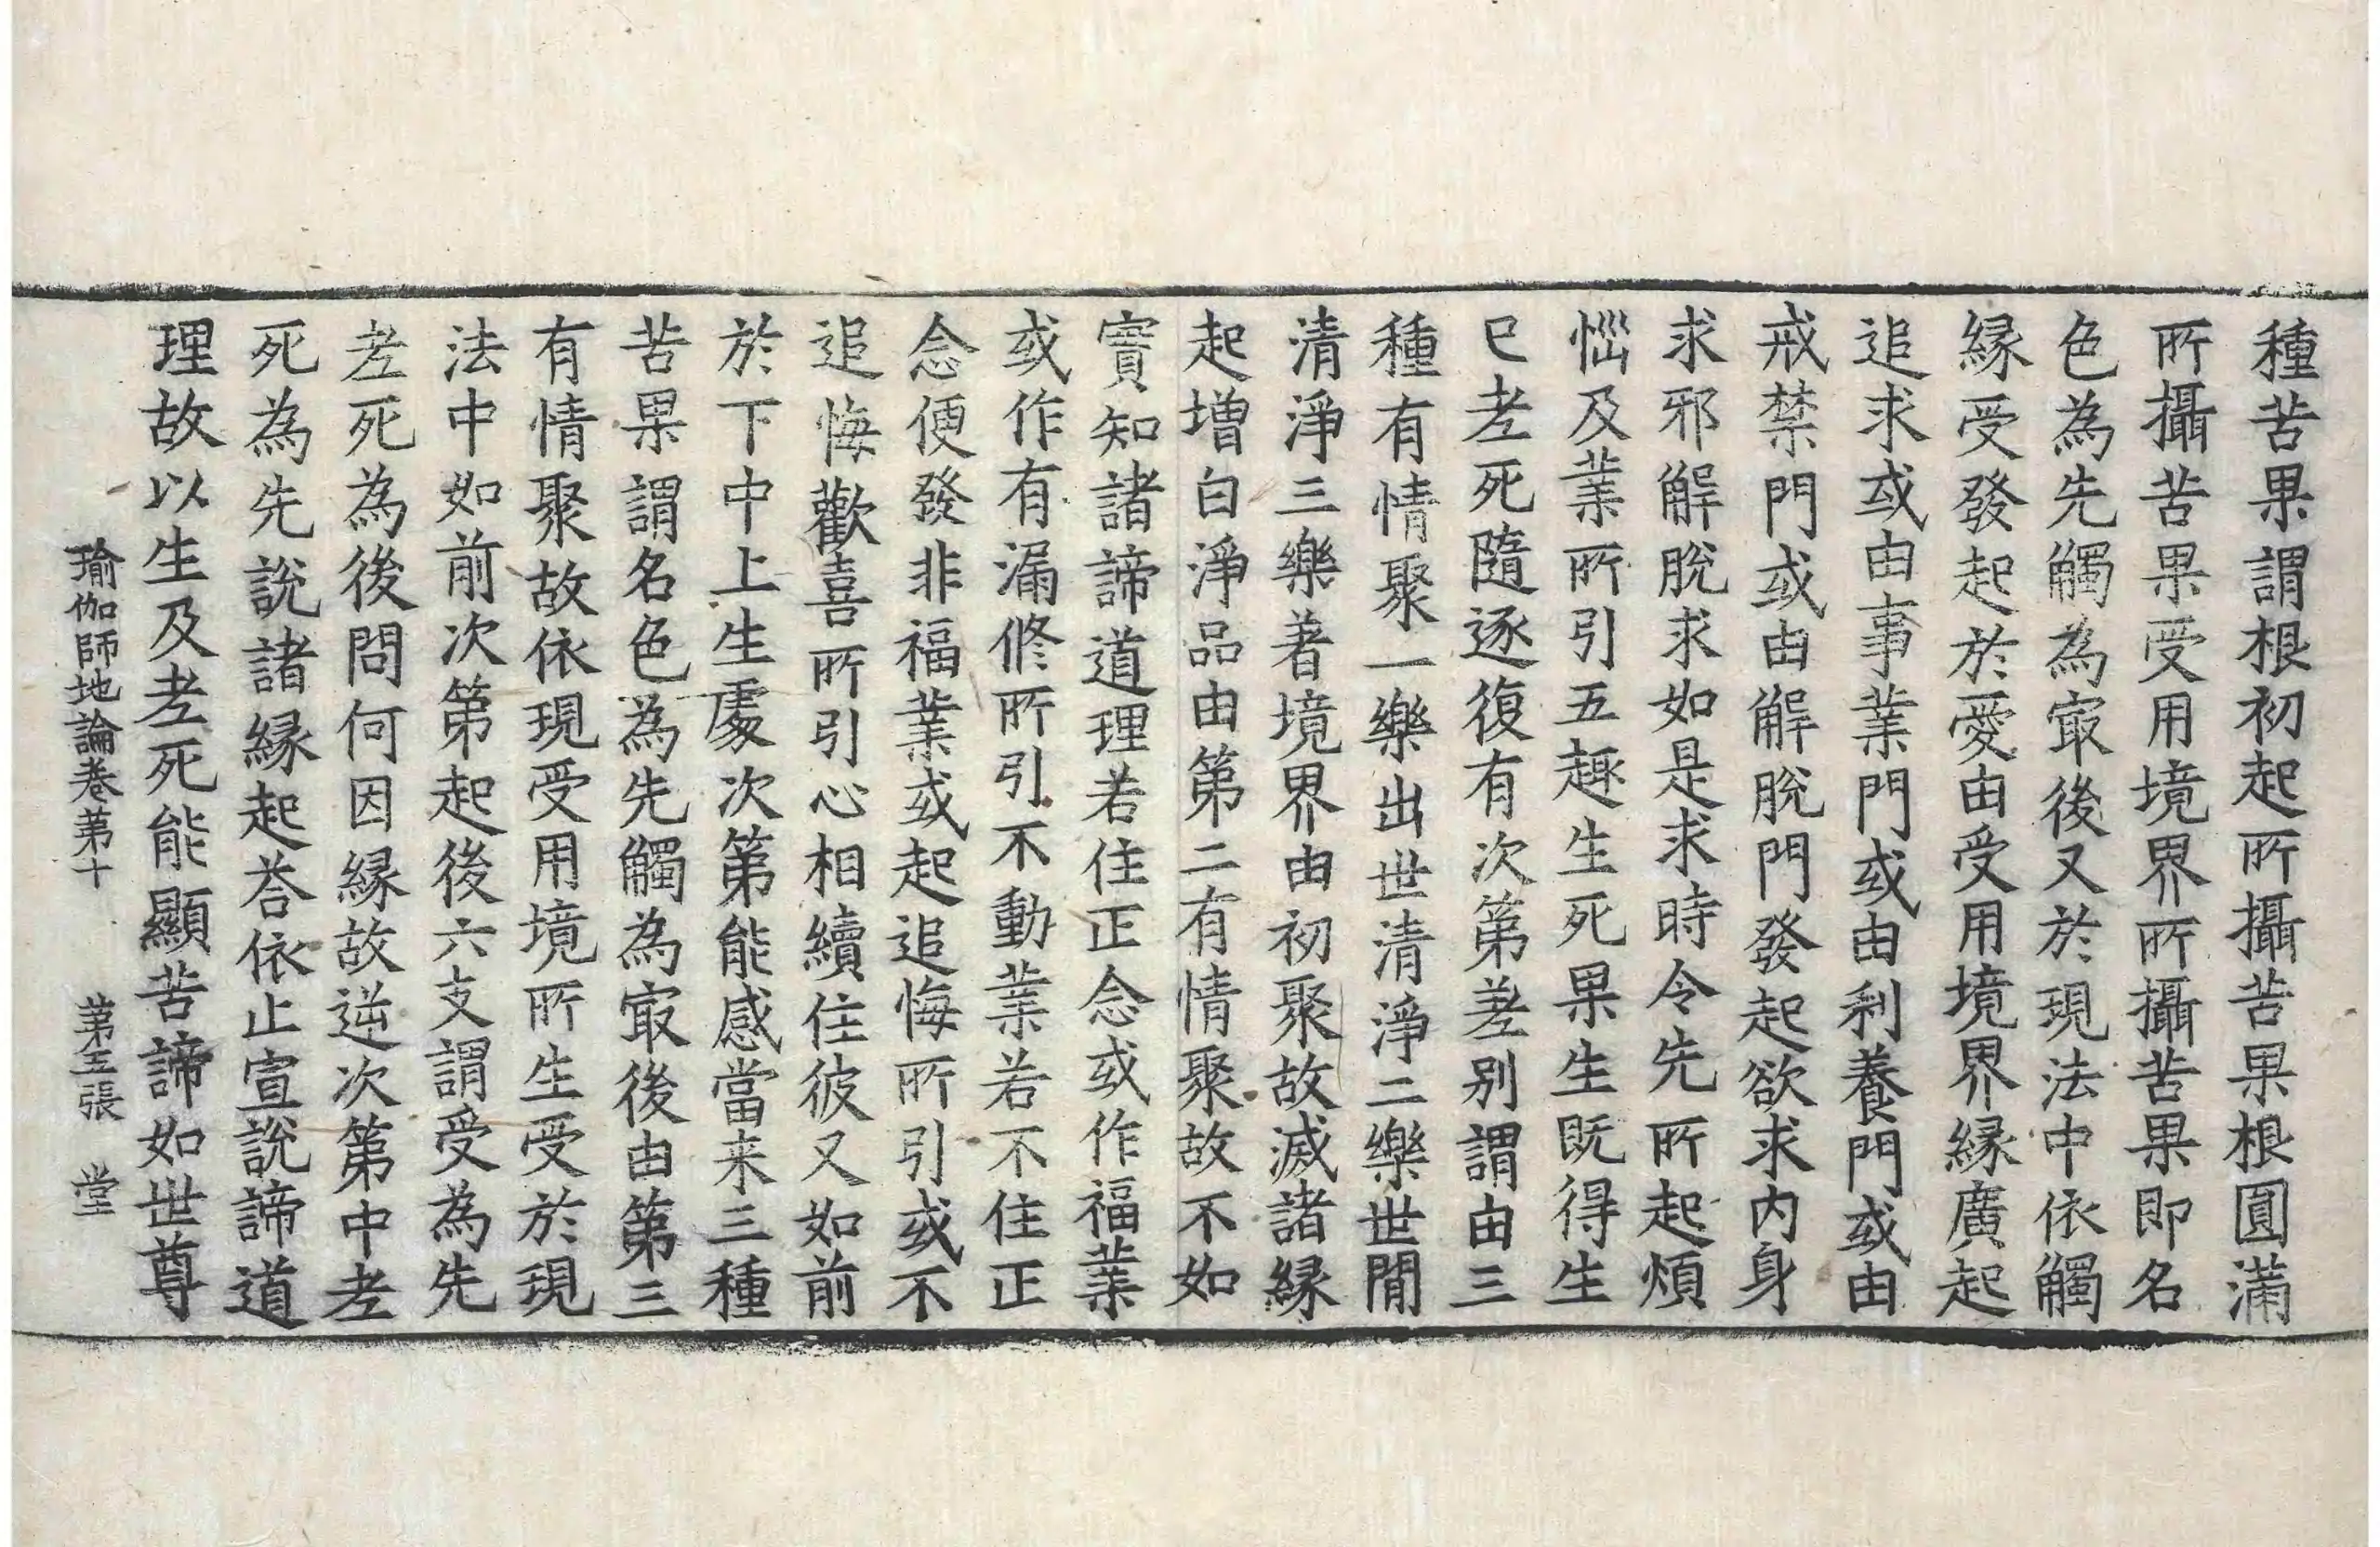 種苦果謂根初起所攝苦果根圓滿
所攝苦果受用境界所攝苦果即名
色為先觸為㝡後又於現法中依觸
縁受發起於愛由受用境界縁廣起
追求或由事業門或由利養門或由
戒禁門或由解脫門發起欲求内身
求邪解脫求如是求時令先所起煩
惱及業所引五趣生死果生既得生
已老死隨逐復有次第差別謂由三
種有情聚一樂出世清淨二樂世間
清淨三樂著境界由初聚故滅諸縁
起增白淨品由第二有情聚故不如
實知諸諦道理若住正念或作福業
或作有漏修所引不動業若不住正
念便發非福業或起追悔所引或不
追悔歡喜所引心相續住彼又如前
於下中上生處次第能感當来三種
苦果謂名色為先觸為㝡後由第三
有情聚故依現受用境所生受於現
法中如前次第起後六支謂受為先
老死為後問何因縁故逆次第中老
死為先說諸縁起荅依止宣說諦道
理故以生及老死能顯苦諦如世尊
瑜伽師地論卷第十 第五張 堂